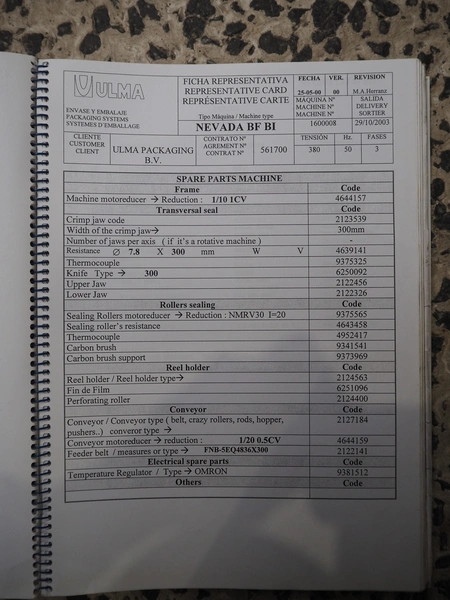 ULMA
ENVASE Y EMBALAJE
PACKAGING SYSTEMS
SYSTEMES D'EMBALLAGE
FICHA REPRESENTATIVA
REPRESENTATIVE CARD
REPRÉSENTATIVE CARTE
Tipo Máquina / Machine type
NEVADA BF BI
FECHA VER. REVISION
25-05-00 00 M.A.Herranz
MÁQUINA Nº SALIDA
MACHINE Nº DELIVERY
MACHINE Nº SORTIER
1600008 29/10/2003
CLIENTE
CUSTOMER
CLIENT
ULMA PACKAGING
B.V.
CONTRATO Nº
AGREMENT Nº
CONTRAT Nº
561700
TENSIÓN Hz. FASES
380 50 3
SPARE PARTS MACHINE
Frame Code
Machine motoreducer → Reduction : 1/10 1CV 4644157
Transversal seal Code
Crimp jaw code 2123539
Width of the crimp jaw→ 300mm
Number of jaws per axis ( if it's a rotative machine ) -
Resistance ∅ 7.8 X 300 mm W V 4639141
Thermocouple 9375325
Knife Type → 300 6250092
Upper Jaw 2122456
Lower Jaw 2122326
Rollers sealing Code
Sealing Rollers motoreducer → Reduction : NMRV30 I=20 9375565
Sealing roller's resistance 4643458
Thermocouple 4952417
Carbon brush 9341541
Carbon brush support 9373969
Reel holder Code
Reel holder / Reel holder type→ 2124563
Fin de Film 6251096
Perforating roller 2124400
Conveyor Code
Conveyor / Conveyor type ( belt, crazy rollers, rods, hopper, 2127184
pushers..) converor type →
Conveyor motoreducer → reduction : 1/20 0.5CV 4644159
Feeder belt / measures or type→ FNB-5EQ4836X300 2122141
Electrical spare parts Code
Temperature Regulator / Type → OMRON 9381512
Others Code